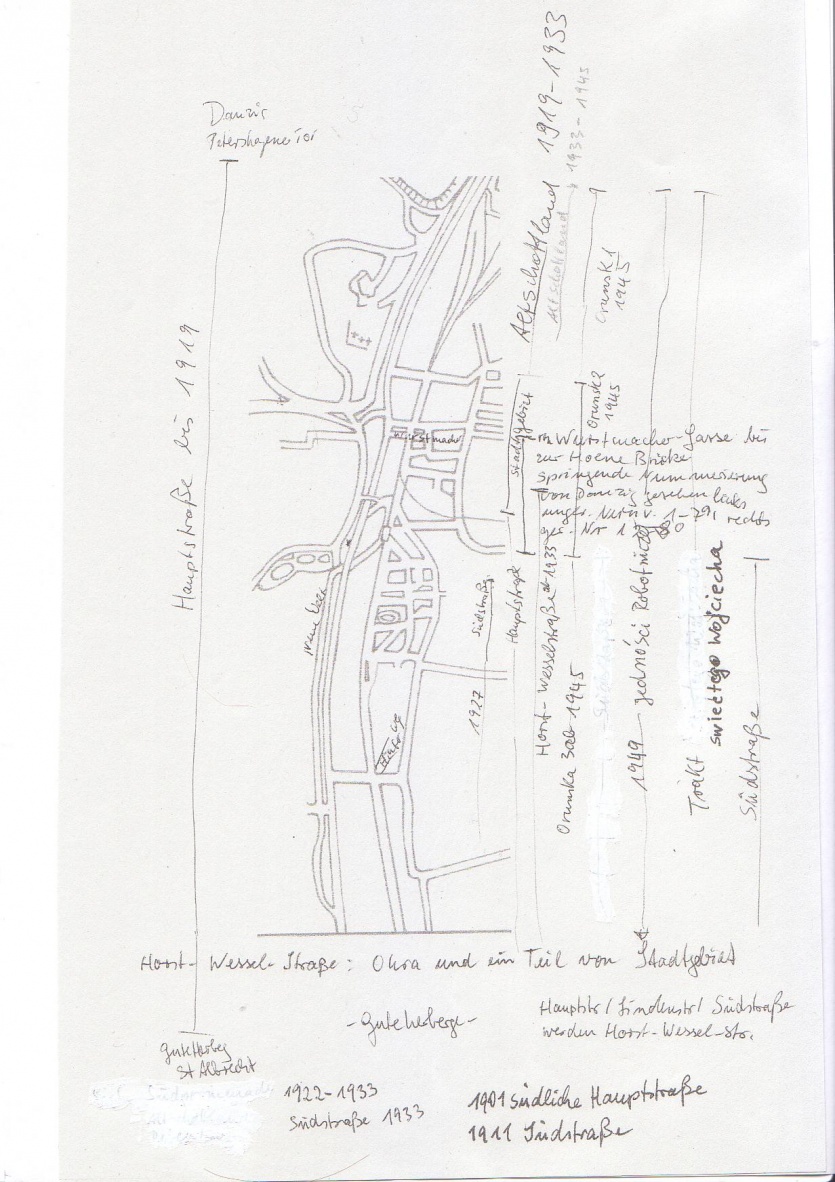 Danzig
Petershagener Tor
Hauptstraße bis 1919
Altschottland 1919-1933
Altschottland 1933-1945
Orunska 1945
Orunska 1945
Stadtgebiet
Wurstmacher
von Wurstmacher-Gasse bis
zur Hoene Brücke
springende Nummerierung
von Danzig gesehen links
unger. Nr. v. 1-79, rechts
ger. Nr
Neue Welt
Südstraße
1927
Hauptstraße
Horst-Wesselstraße ab 1933
Orunska ab 1945
1949 jedności Robotniczej
Trakt
świętego Wojciecha
Südstraße
Horst-Wessel-Straße: Ohra und ein Teil von Stadtgebiet
-Guteherberge-
Hauptstr/Lindenstr/Südstraße
werden Horst-Wessel-Str.
GuteHerberg
St Albrecht
1922-1933
Südstraße 1933
1901 südliche Hauptstraße
1911 Südstraße